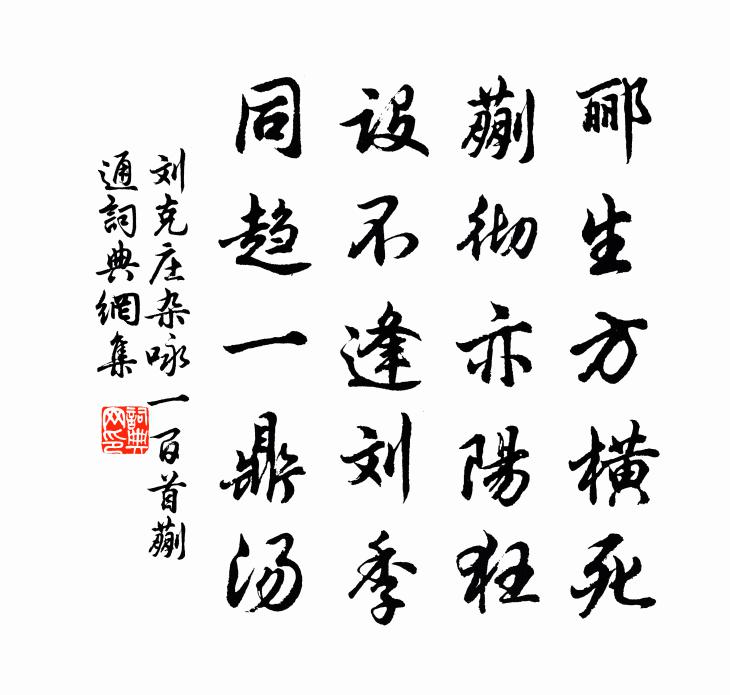 郦生方横死
蒯彻亦陽狂
設不逢刘季
同趋一鼎汤
刘克庄杂咏一百首蒯
通詞典網集
詞典
网印